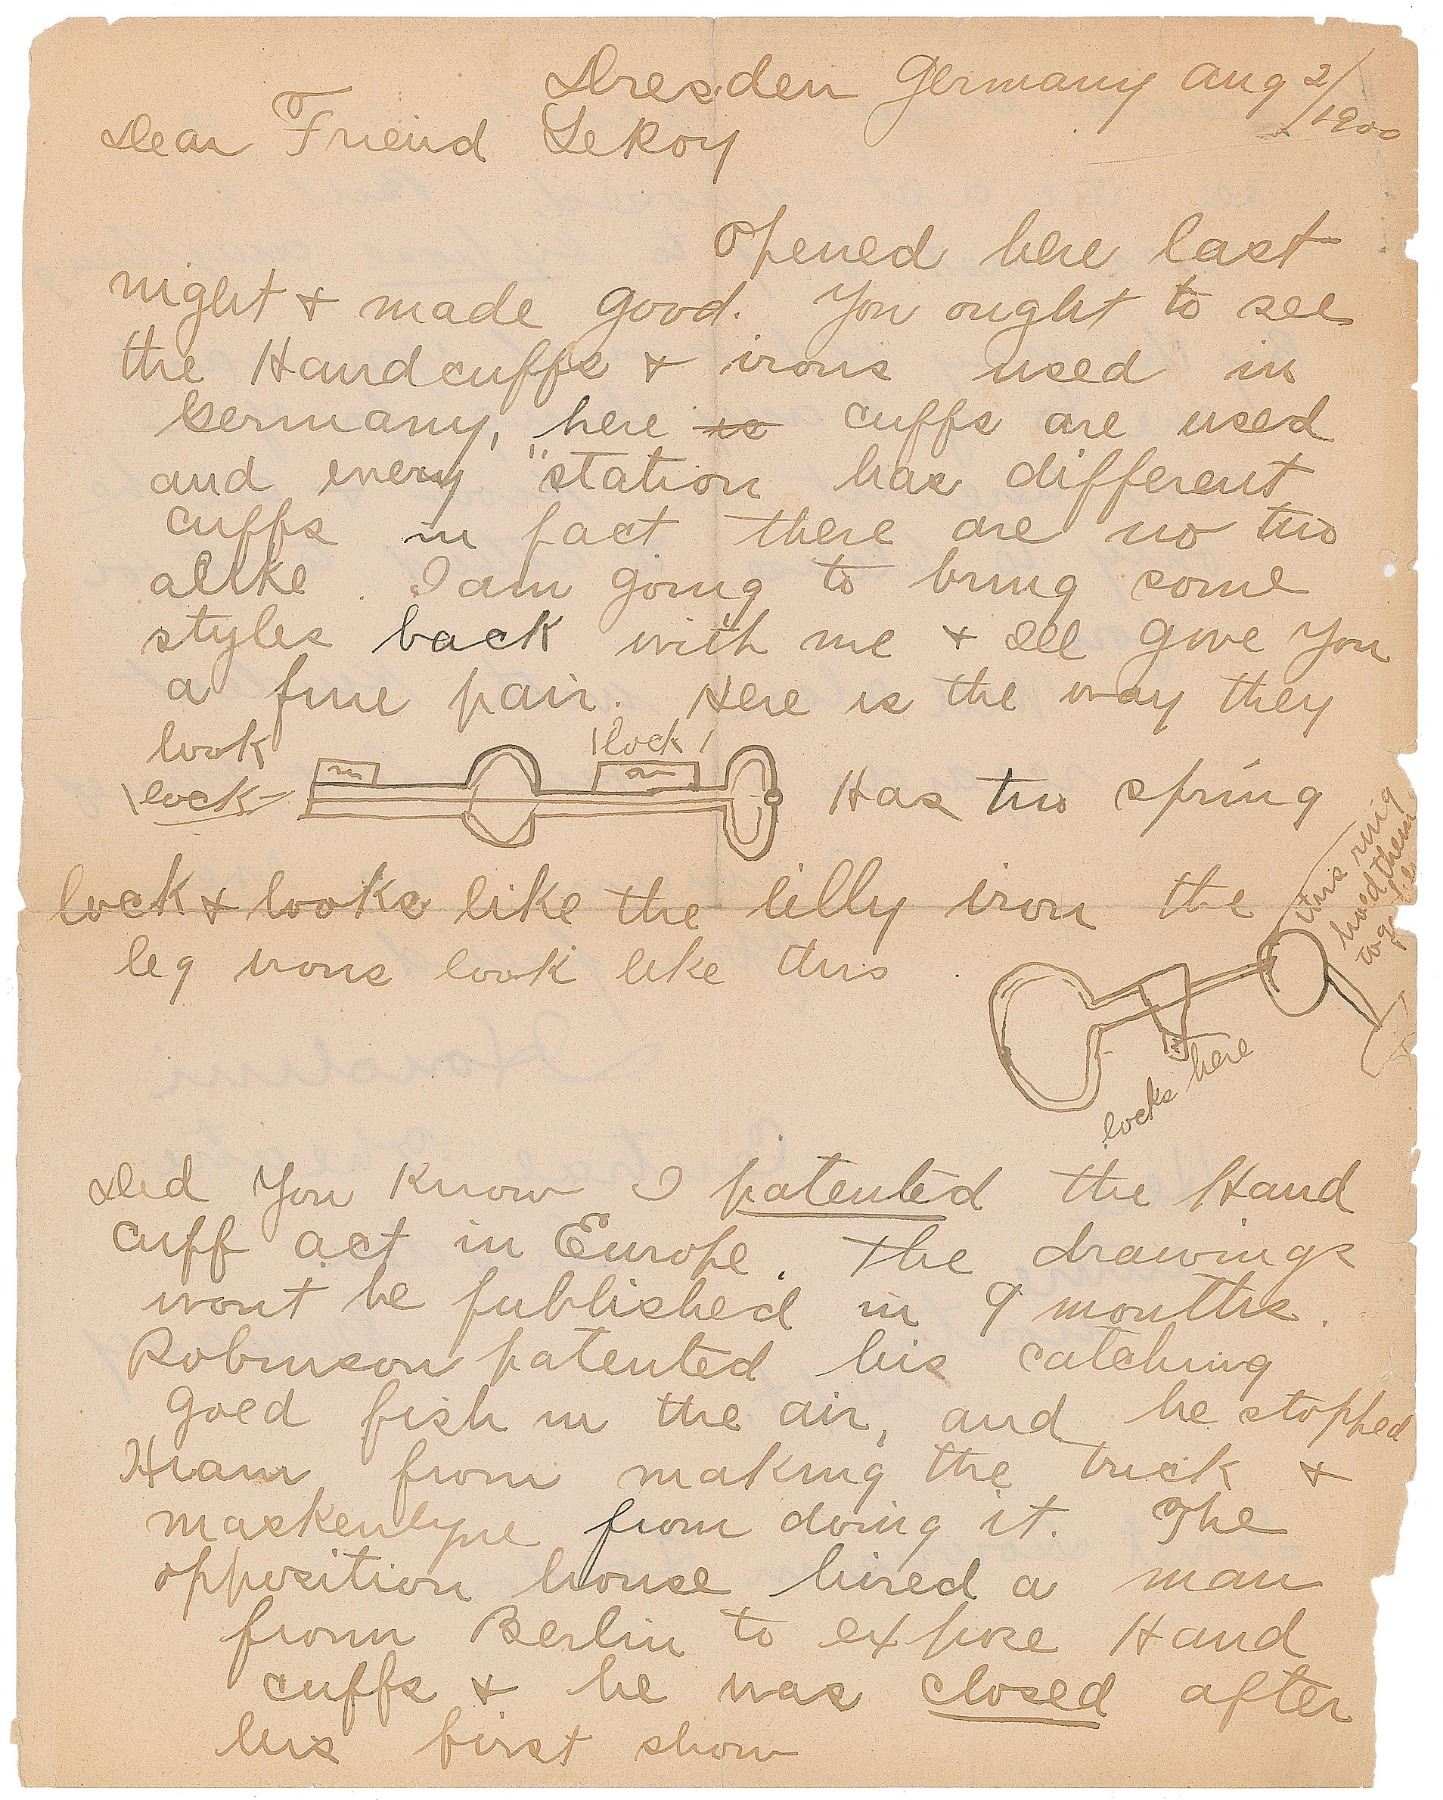 Dresden Germany Aug 2/1900
Dear Friend LeRoy
Opened here last
night & made good. You ought to see
the Handcuffs & irons used in
Germany, here is cuffs are used
and every "station has different
cuffs in fact there are no two
alike. I am going to bring some
styles back with me & Ill give you
a fine pair. Here is the way they
look
lock
lock
Has two spring
lock & looks like the lilly iron the
leg irons look like this
this ring
hold them
locks here
Did You Know I patented the Hand
cuff act in Europe. The drawings
wont be published in 9 months.
Robinson patented his catching
goed fish in the air, and he stopped
Hiam from making the trick &
maskenlyne from doing it. The
opposition house hired a man
from Berlin to expose Hand
cuffs & he was closed after
his first show